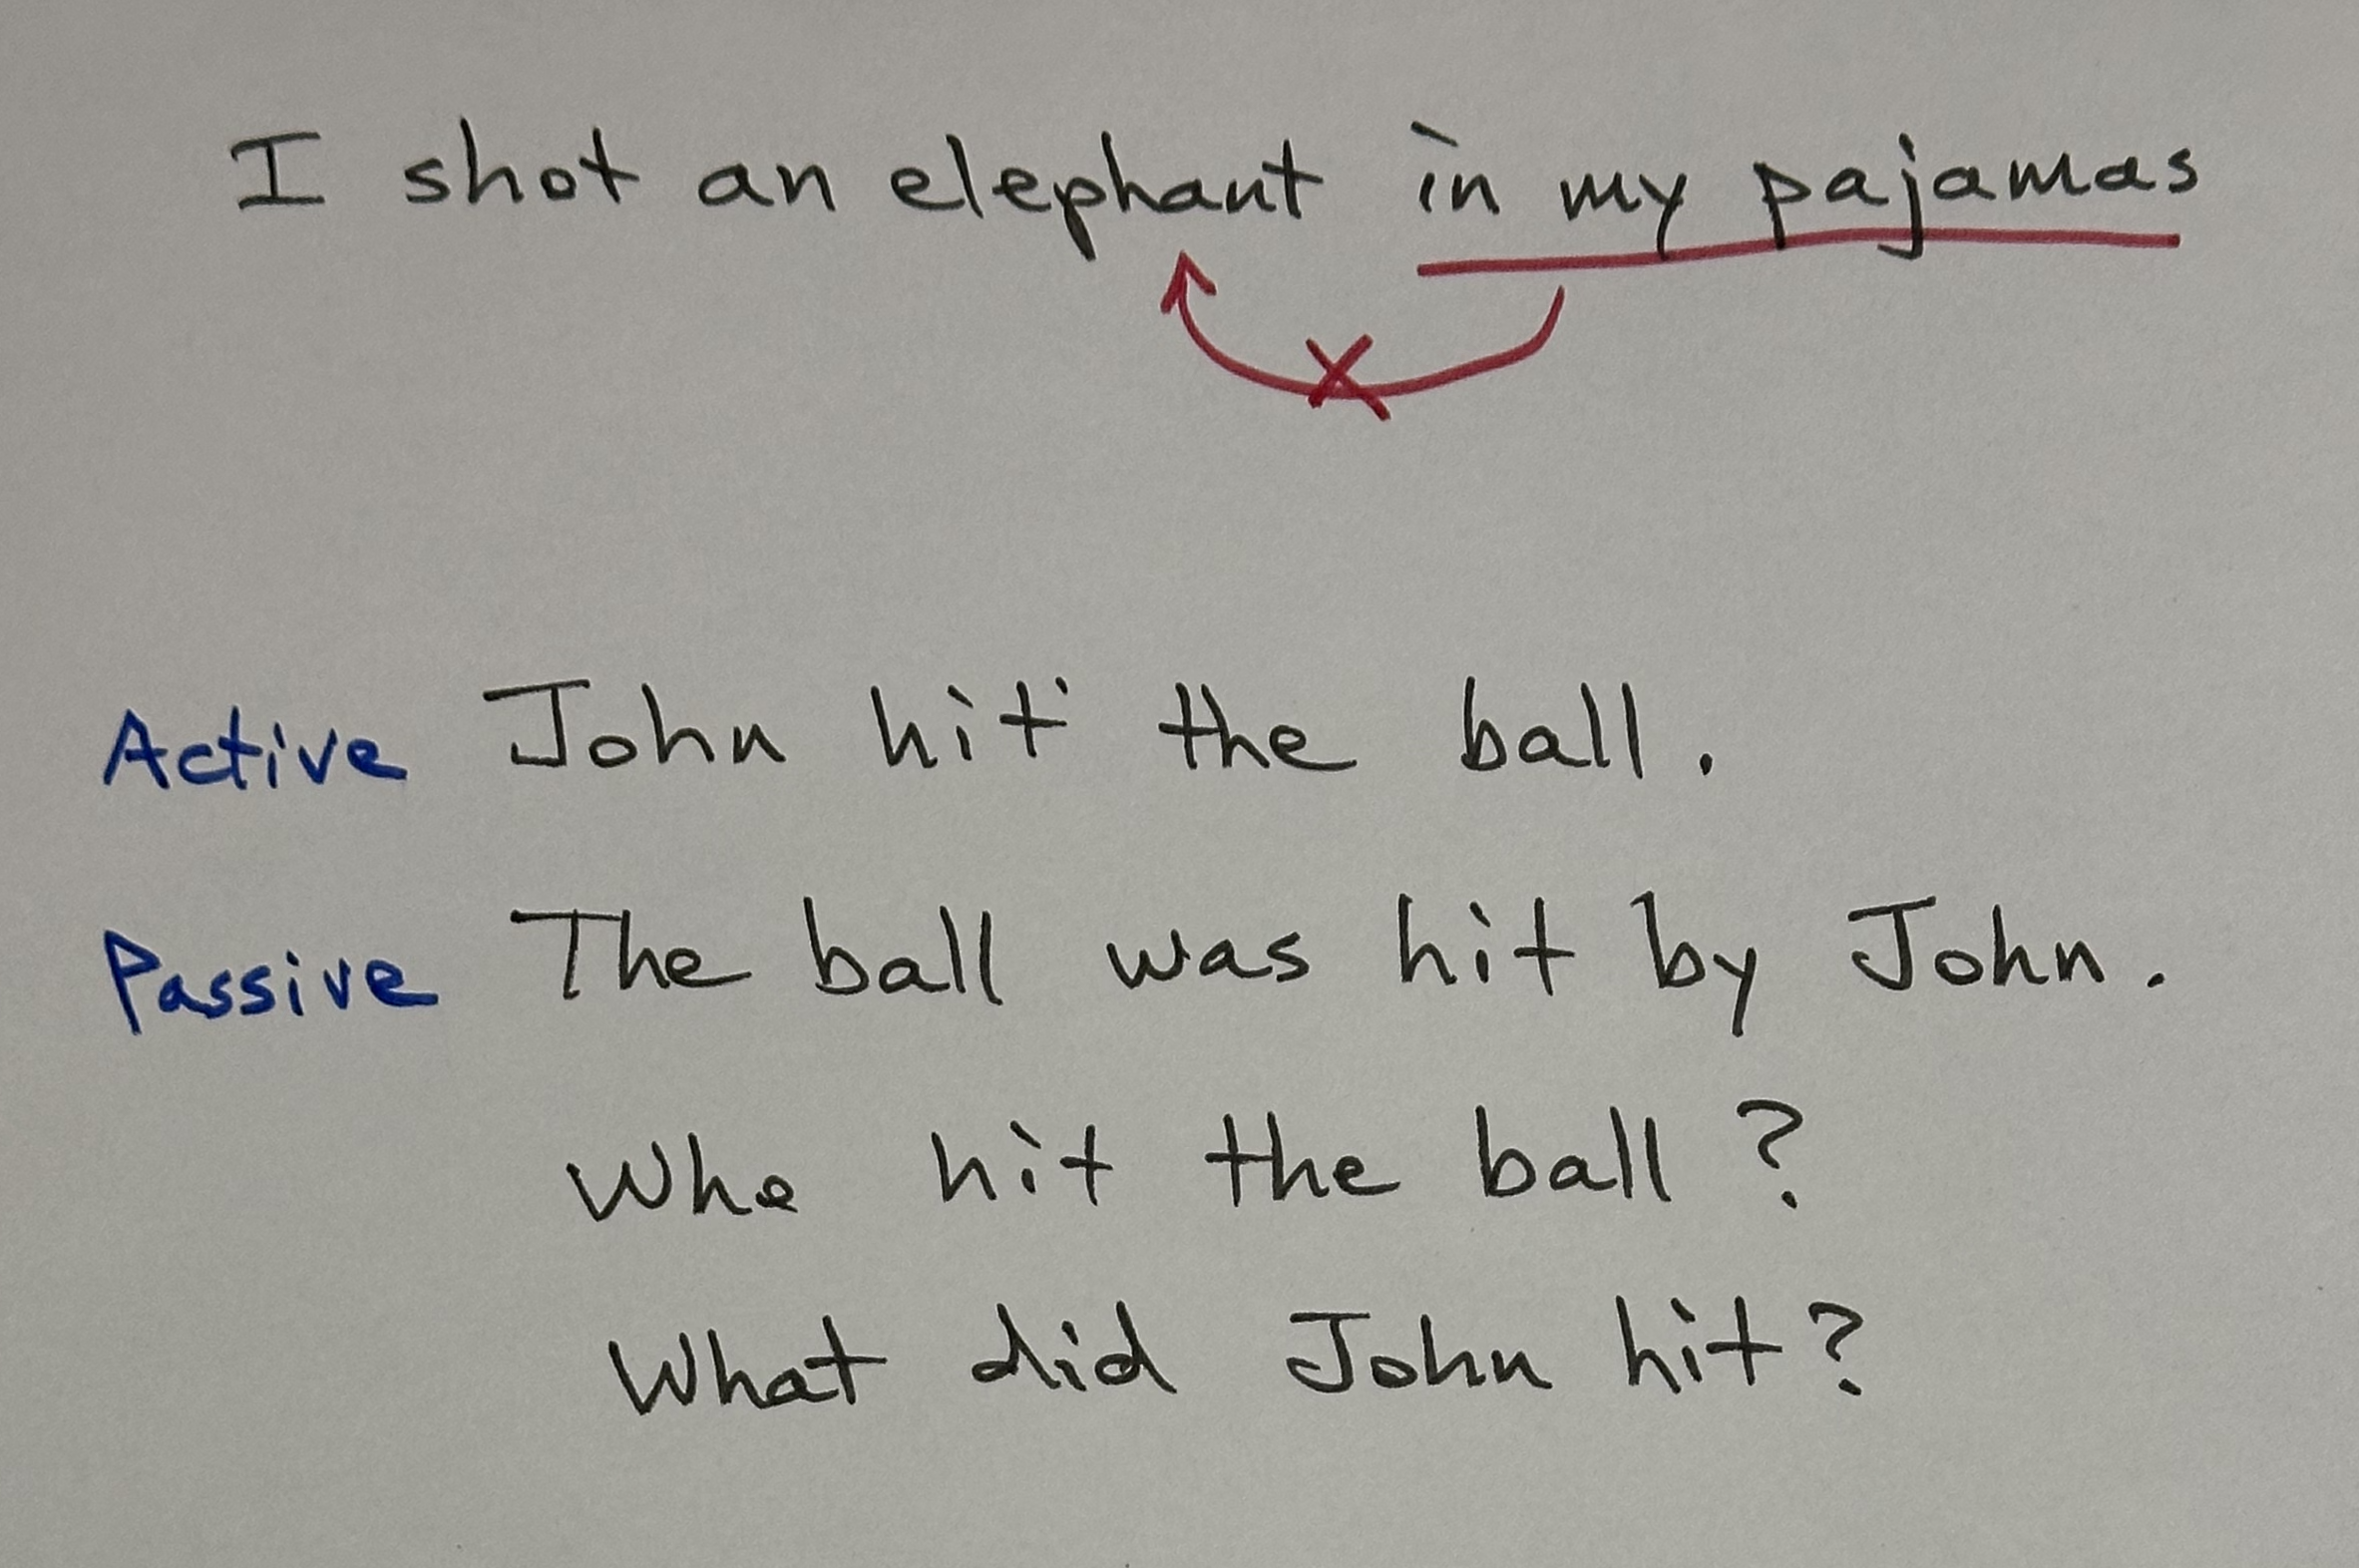 I shot an elephant in my pajamas
Active John hit the ball.
Passive The ball was hit by John.
Who hit the ball?
What did John hit?